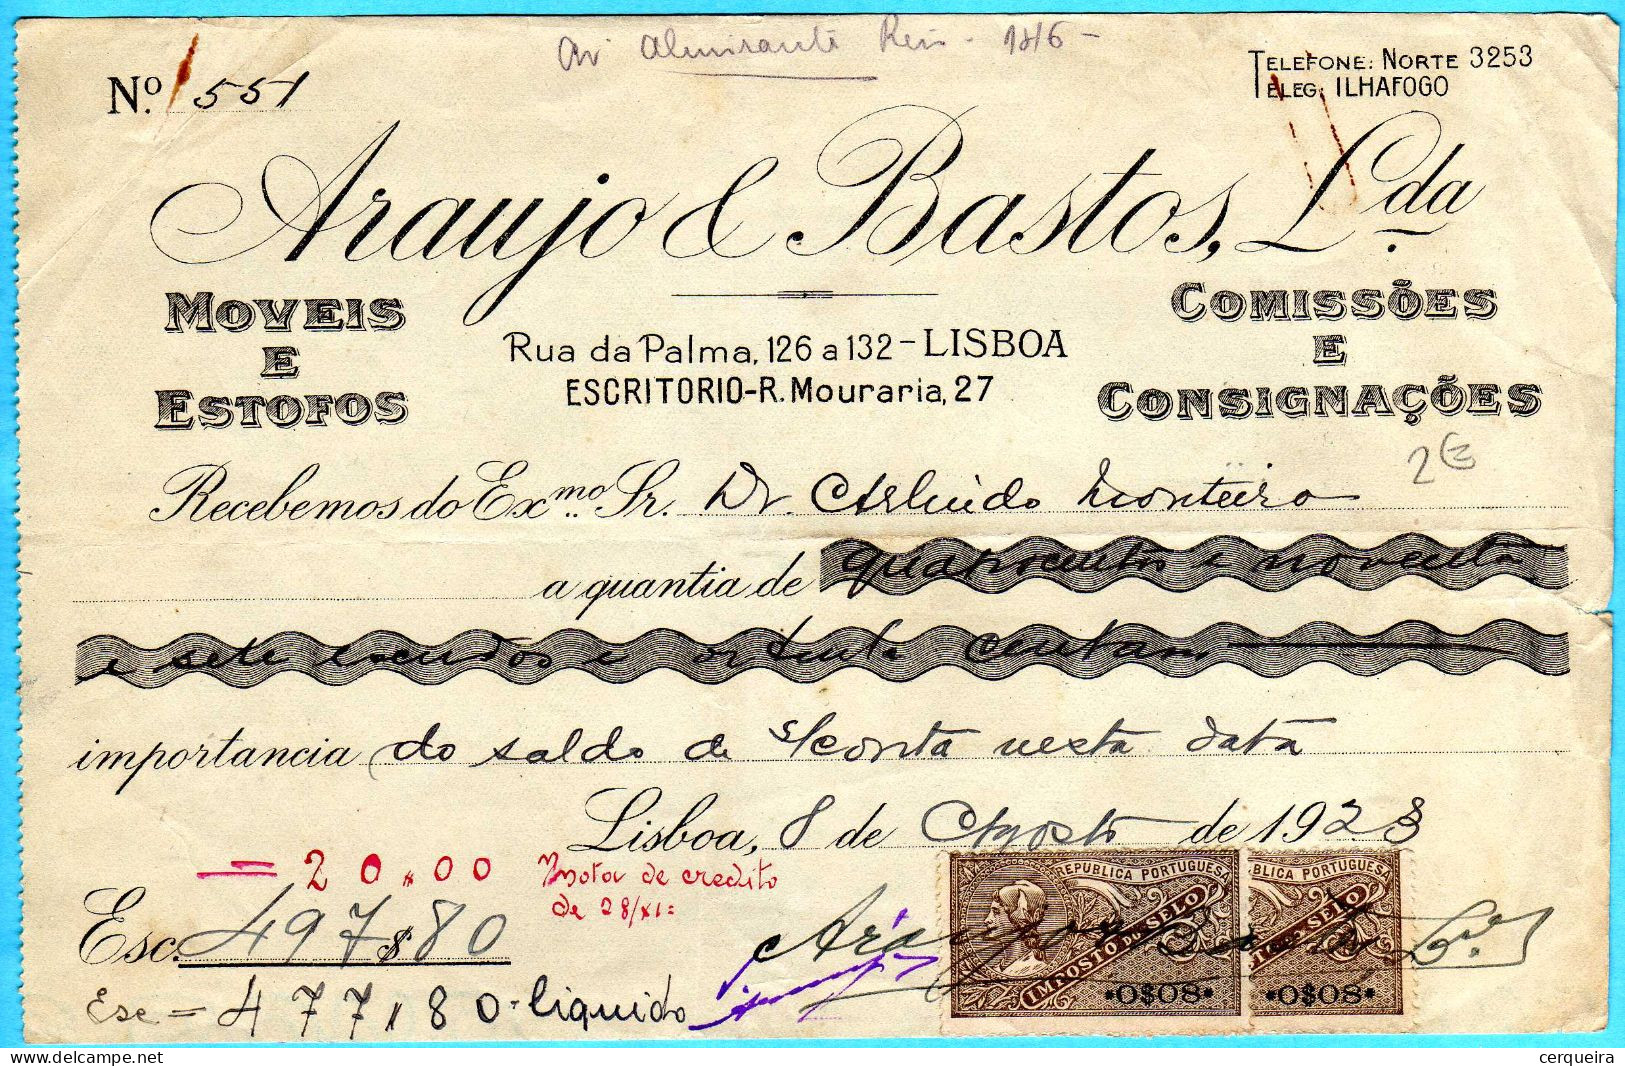 Av Almirante Reis - 146 -
Nº 551
TELEFONE: NORTE 3253
TELEG: ILHAFOGO
Araujo & Bastos, Lda.
MOVEIS
E
ESTOFOS
Rua da Palma, 126 a 132 - LISBOA
ESCRITORIO-R. Mouraria, 27
COMISSÕES
E
CONSIGNAÇÕES
2€
Recebemos do Exmo. Sr. Dr. Arlindo Monteiro
a quantia de quatrocentos e noventa
e sete escudos e oitenta centavos
importancia do saldo de s/conta nesta data
Lisboa, 8 de Agosto de 1923
= 20,00 Nota de credito
de 28/XI =
Esc. 497$80
Esc = 477,80 - liquido
Araujo & Bastos Lda.
REPUBLICA PORTUGUESA
IMPOSTO DO SELO
0$08
BLICA PORTUGUESA
SELO
0$08
cerqueira